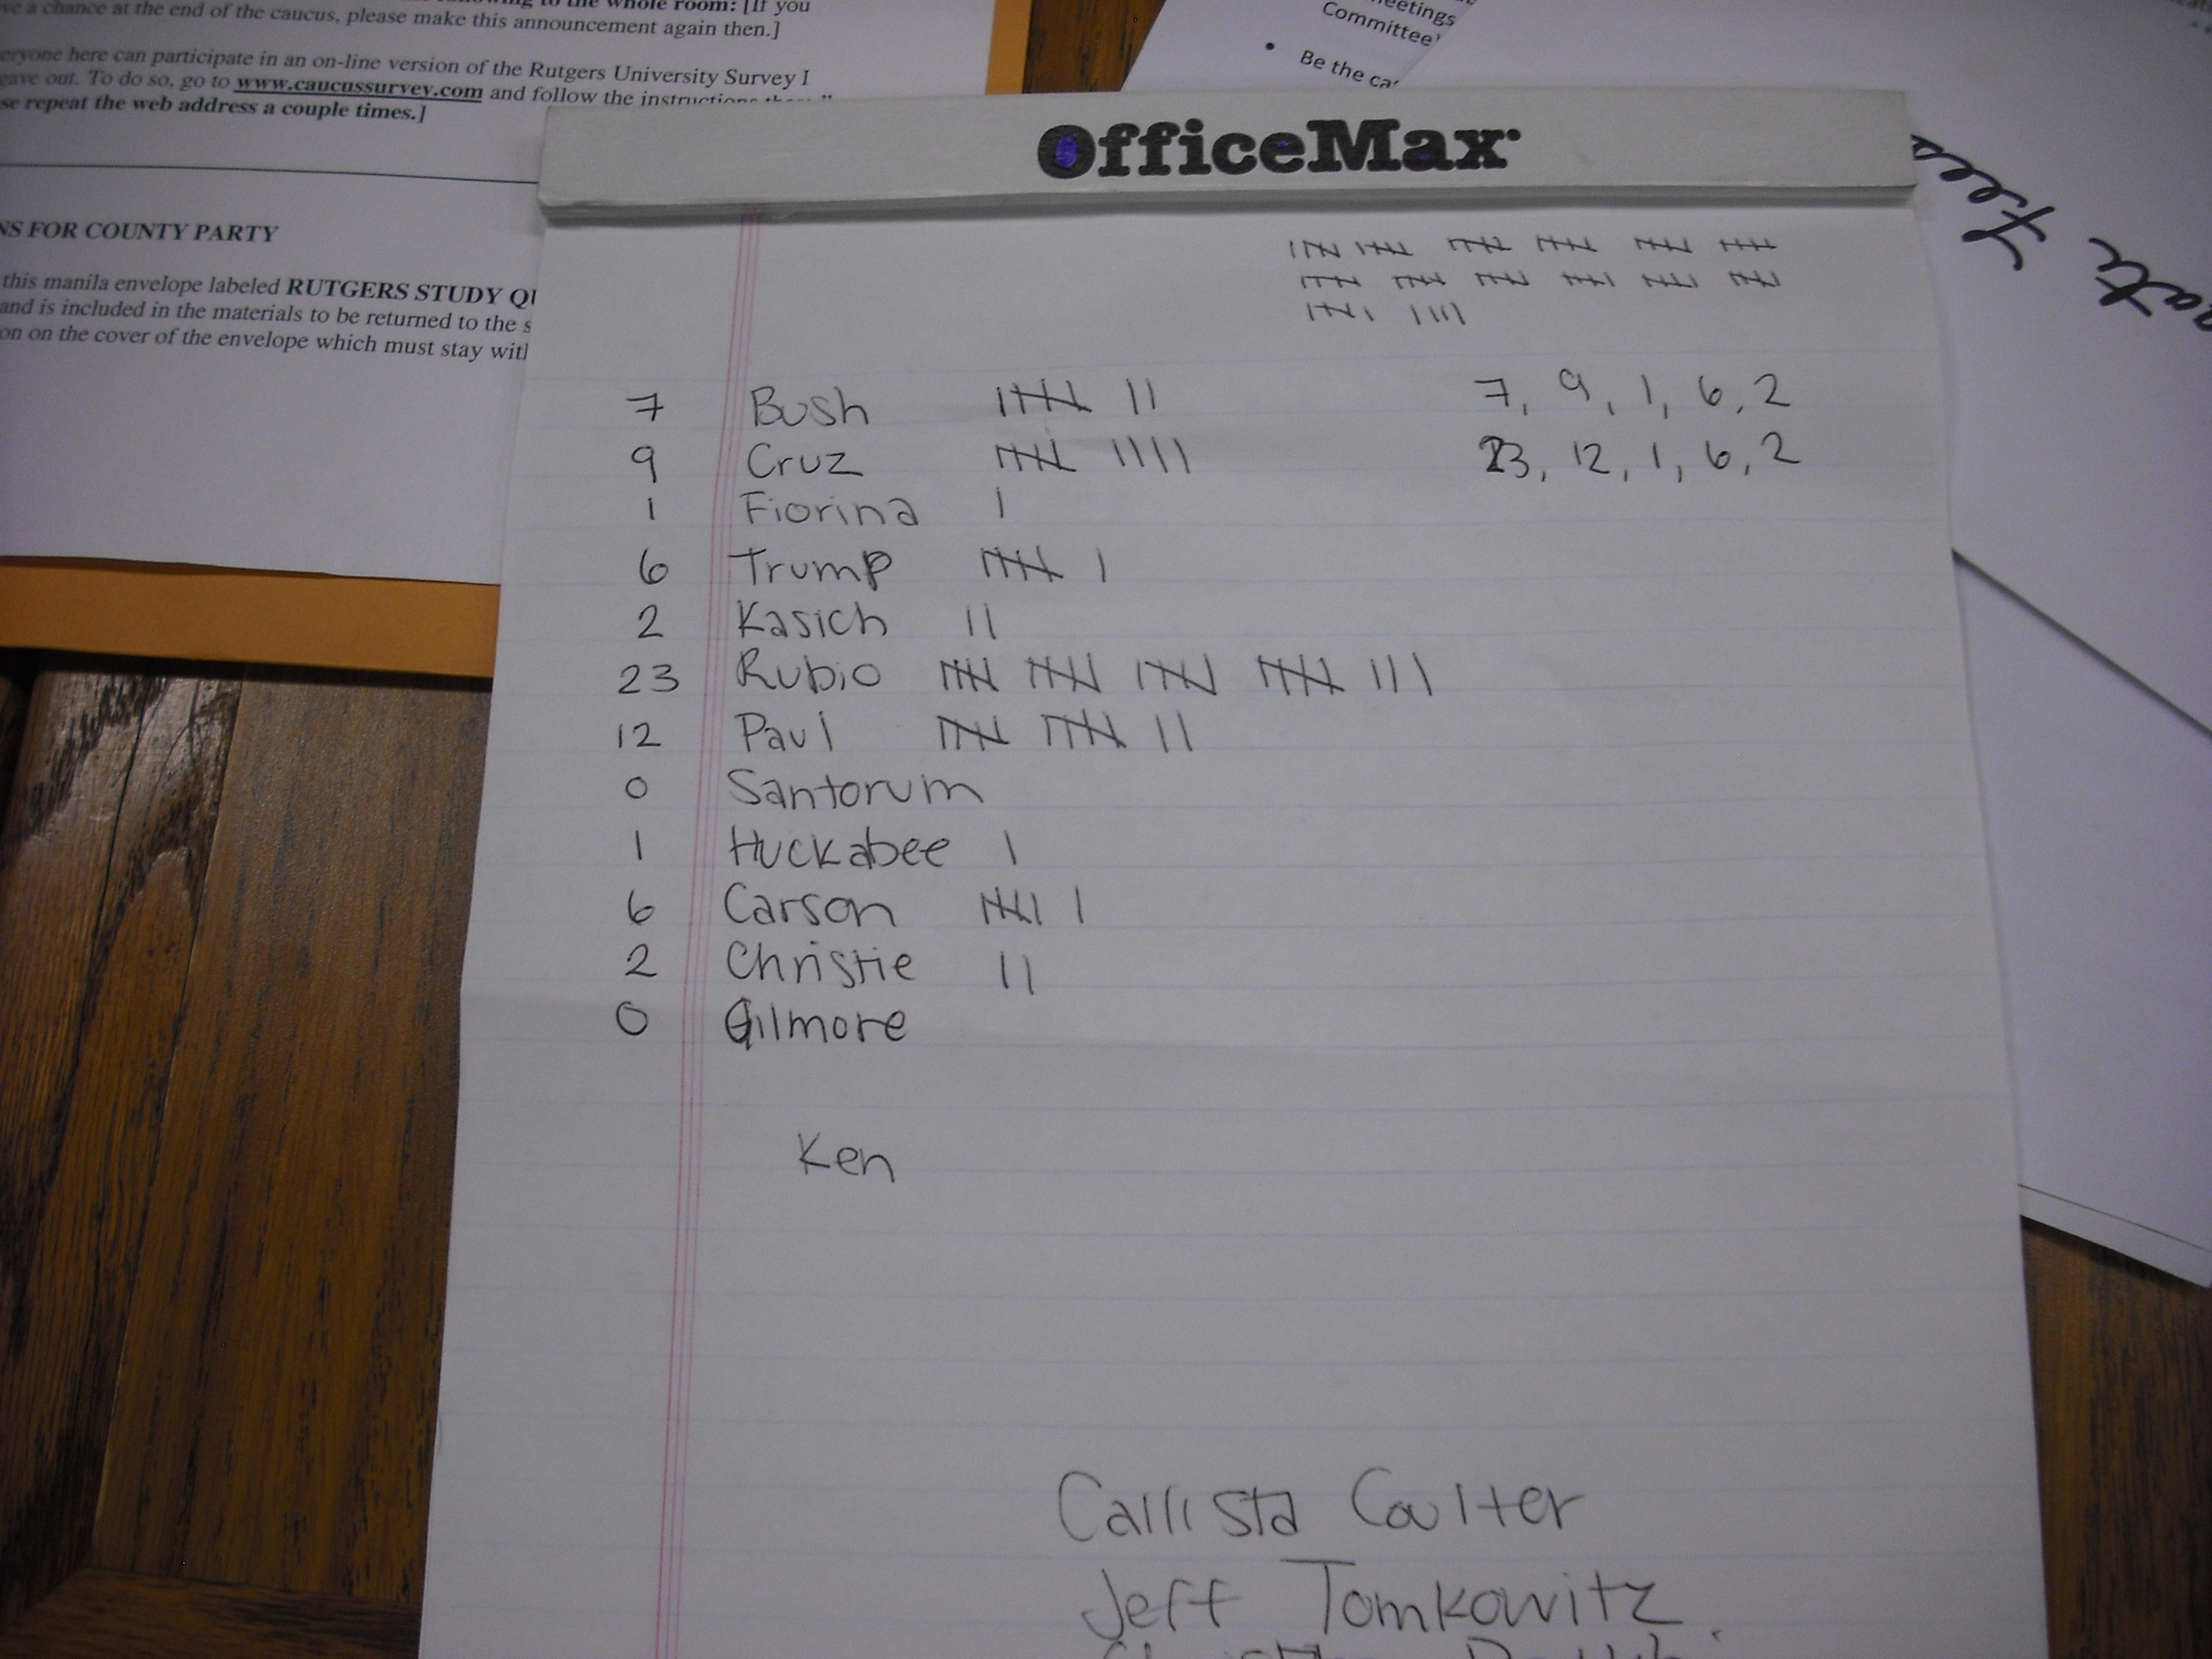 ve a chance at the end of the caucus, please make this announcement again then.]
to the whole room: [If you
eryone here can participate in an on-line version of the Rutgers University Survey I
gave out. To do so, go to www.caucussurvey.com and follow the instructions there."
se repeat the web address a couple times.]
NS FOR COUNTY PARTY
this manila envelope labeled RUTGERS STUDY QU
and is included in the materials to be returned to the s
on on the cover of the envelope which must stay with
eetings
Committee'
• Be the ca
OfficeMax
7 Bush 7, 9, 1, 6, 2
9 Cruz 23, 12, 1, 6, 2
1 Fiorina
6 Trump
2 Kasich
23 Rubio
12 Paul
0 Santorum
1 Huckabee
6 Carson
2 Christie
0 Gilmore
Ken
Callista Coulter
Jeff Tomkowitz